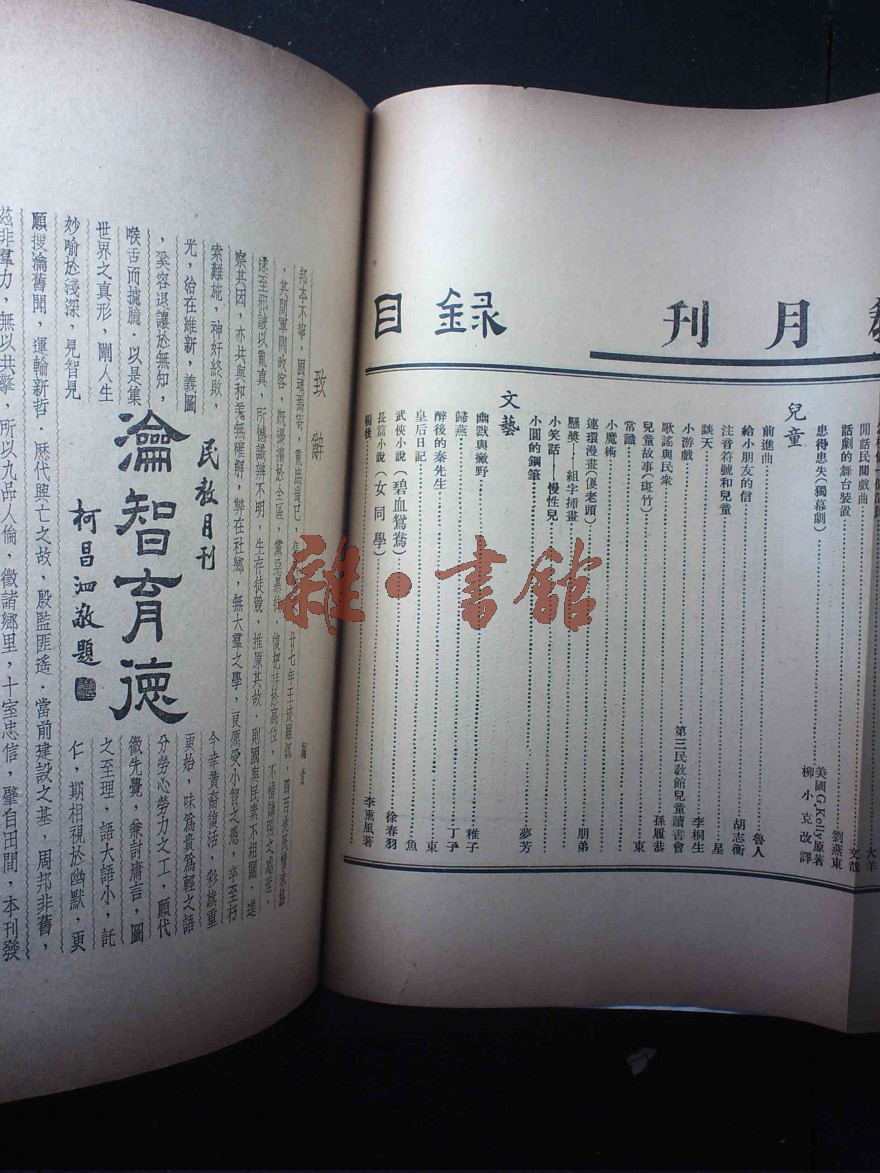 月刊
目錄
大羊
閒話民間戲曲 文哉
話劇的舞台裝置 劉燕東
兒童
患得患失(獨幕劇) 美國G.Kelly原著 柳小克改譯
前進曲 魯人
給小朋友的信 胡志衡
注音符號和兒童 星
談天 李桐生
小游戲 第三民教館兒童讀書會
歌謠與民衆 孫履恭
兒童故事(斑竹)
常識 東
小魔術
連環漫畫(傻老頭) 朋弟
懸獎——組字揷畫
小笑話——慢性兒
小圓的鋼筆 夢芳
文藝
幽默與撇野 稚子
歸燕 丁予
醉後的秦先生 東
皇后日記 魚
武俠小說(碧血鴛鴦) 徐春羽
長篇小說(女同學) 李熏風著
編後
致辭
編者
邦本不寧,國魂
廿七年
,其間軍閥政客,既擾攘於全區,
復把持於高位,
遂至邪詖以亂真,所憾識辨不明,生存徒競,推原其故,則國與民素不相圖,進
察其因,亦共與和毫無確解,弊在社鄉,無大羣之學,
小智之愚,卒至朽
索難施,神奸終敗,
今幸黃裔復活,彩旗重
光,治在維新,義圖
更始,味爲貴爲輕之語
,奚容退讓於無知,
分勞心勞力之工,願代
喉舌而攄臆.以是集
徵先覺,兼討庸言,圖
世界之真形,闡人生
之至理,語大語小,託
妙喻於淺深,見智見
仁,期相視於幽默,更
民教月刊
瀹智育德
柯昌泗敬題
願搜瀹舊聞,運輸新哲.歷代興亡之故,殷監匪遙.當前建設之基,周邦非舊,
茲非羣力,無以共擎,所以九品人倫,徵諸鄉里,十室忠信,肇自田間,本刊發
雜·書館